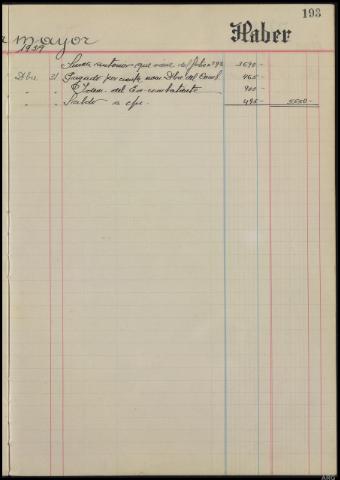 193
mayor Haber
1939
Suma anterior que viene del folio 192 3690-
Dbre. 31 Pagado por cuota mes Dbre. del 465-
" Idem. del Ex-combatiente 900-
Saldo a 495- 5550-